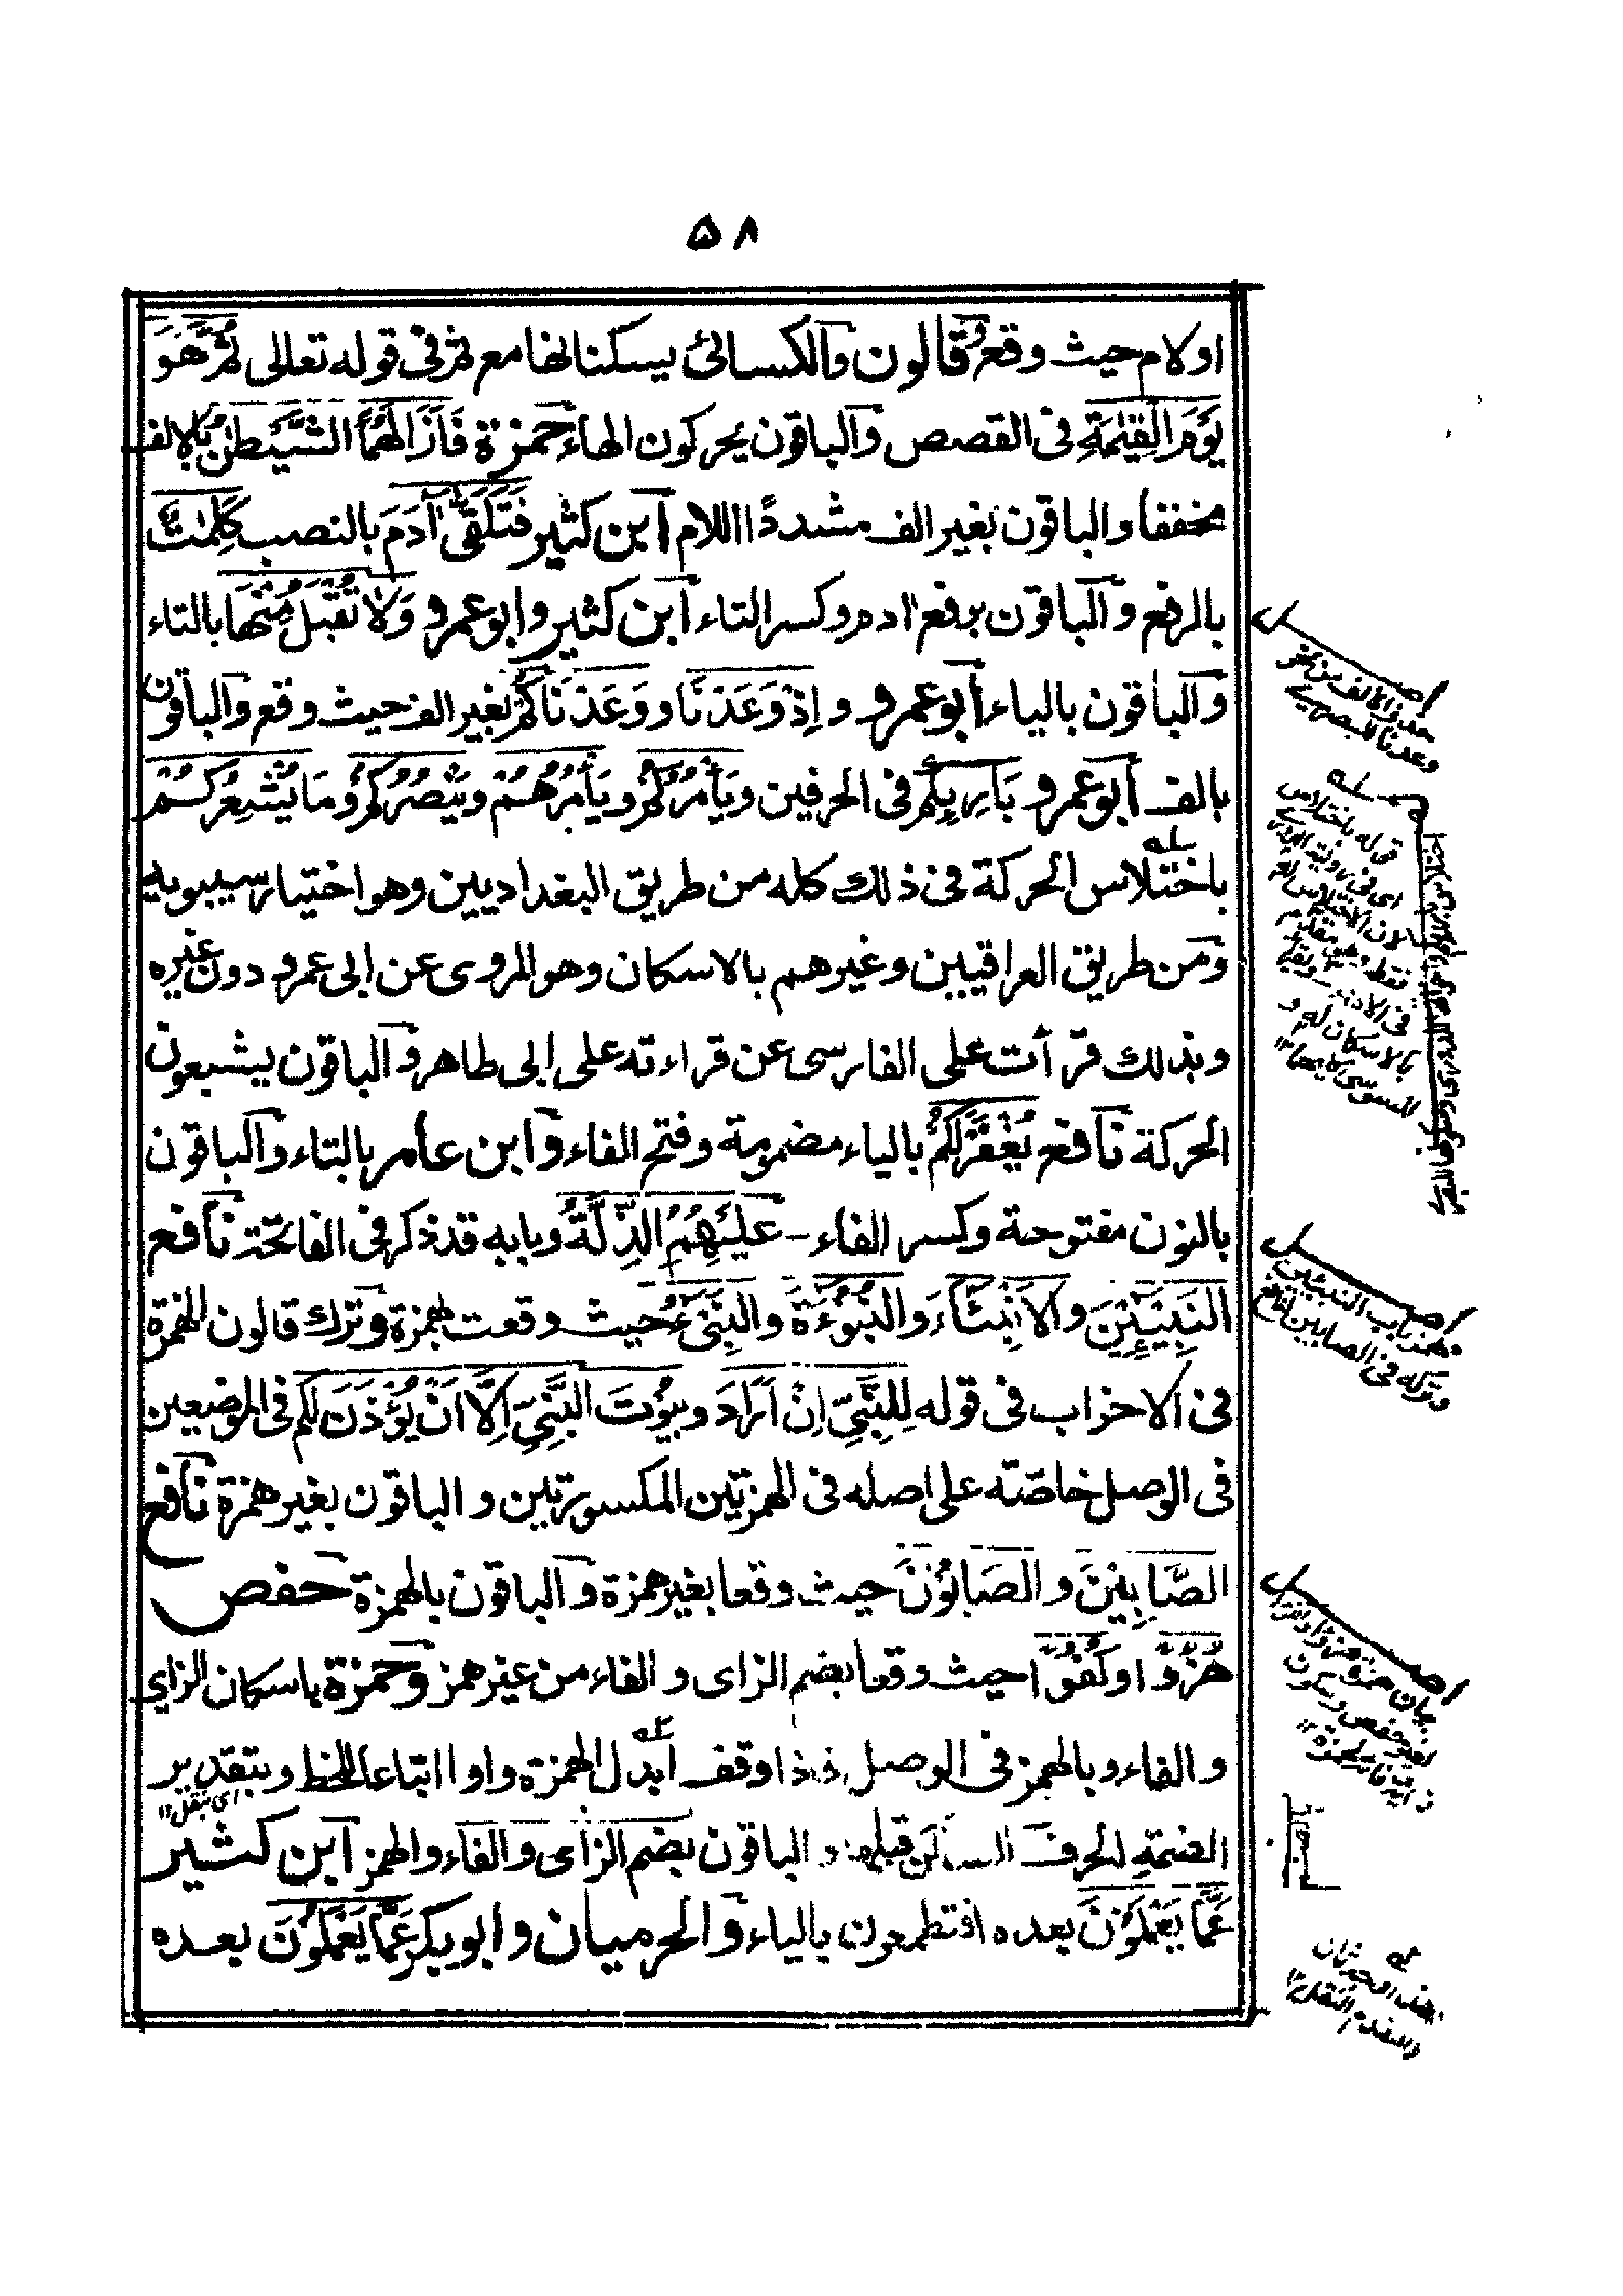 ٥٨
اولام حيث وقع وقالون والكسائى يسكنانها مع ثم فى قوله تعالى ثُمَّ هُوَ
يَوْمَ الْقِيٰمَةِ فى القصص والباقون يحركون الهاء حمزة فَاَزَالَهُمَا الشَّيْطٰنُ بالالف
مخففا والباقون بغير الف مشددًا اللام ابن كثير فَتَلَقّٰى اٰدَمَ بالنصب كَلِمٰتٌ
بالرفع والباقون برفع ادم وكسر التاء ابن كثير وابو عمرو وَلَا تُقْبَلُ مِنْهَا بالتاء
والباقون بالياء ابو عمرو و اِذْ وَعَدْنَا و وَعَدْنَاكُمْ بغير الف حيث وقع والباقون
بالف ابو عمرو بَارِئِكُمْ فى الحرفين ويَأْمُرُكُمْ و يَأْمُرُهُمْ و يَنْصُرُكُمْ و مَا يُشْعِرُكُمْ
باختلاس الحركة فى ذلك كله من طريق البغداديين وهو اختيار سيبويه
ومن طريق العراقيين وغيرهم بالاسكان وهو المروى عن ابى عمرو دون غيره
وبذلك قرأت على الفارسى عن قراءته على ابى طاهر والباقون يشبعون
الحركة نافع يُغْفَرْ لَكُمْ بالياء مضمومة وفتح الفاء وابن عامر بالتاء والباقون
بالنون مفتوحة وكسر الفاء - عَلَيْهِمُ الذِّلَّةُ وبابه قد ذكر فى الفاتحة نافع
النَّبِيْـِٔيْنَ والْاَنْبِئَاءَ والنُّبُوْءَةَ والنَّبِىْءُ حيث وقعت بهمزة وترك قالون الهمزة
فى الاحزاب فى قوله لِلنَّبِىِّ اِنْ اَرَادَ و بيُوْتَ النَّبِىِّ اِلَّا اَنْ يُؤْذَنَ لَكُمْ فى الموضعين
فى الوصل خاصّة على اصله فى الهمزتين المكسورتين و الباقون بغير همزة نافع
الصَّابِيْنَ و الصَّابُوْنَ حيث وقعا بغير همزة و الباقون بالهمزة حفص
هُزُوًا و كُفُوًا حيث وقعا بضم الزاى و الفاء من غير همز وحمزة باسكان الزاى
و الفاء و بالهمز فى الوصل فاذا وقف ابدل الهمزة واوا اتباعا للخط وبتقدير
اى بنقل ١٢
الضمة لحرف الساكن قبلها و الباقون بضم الزاى و الفاء والهمز ابن كثير
عَمَّا يَعْمَلُوْنَ بعده افتطمعون بالياء والحرميان و ابو بكر عَمَّا يَعْمَلُوْنَ بعده
اصل
حذف الالف من نحو
وعدنا للبصرى
قوله باختلاس
بالاسكان له و
للسوسى كليهما ١٢
اصل
همز باب النبيئين
وتركه فى الصابين لنافع
اصل